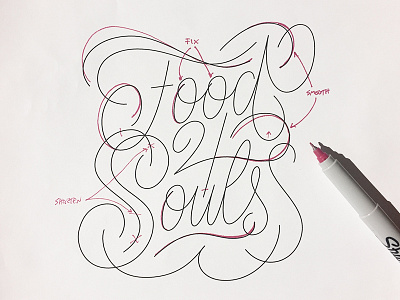 FIX
Food
SMOOTH
2
SHORTEN
Souls